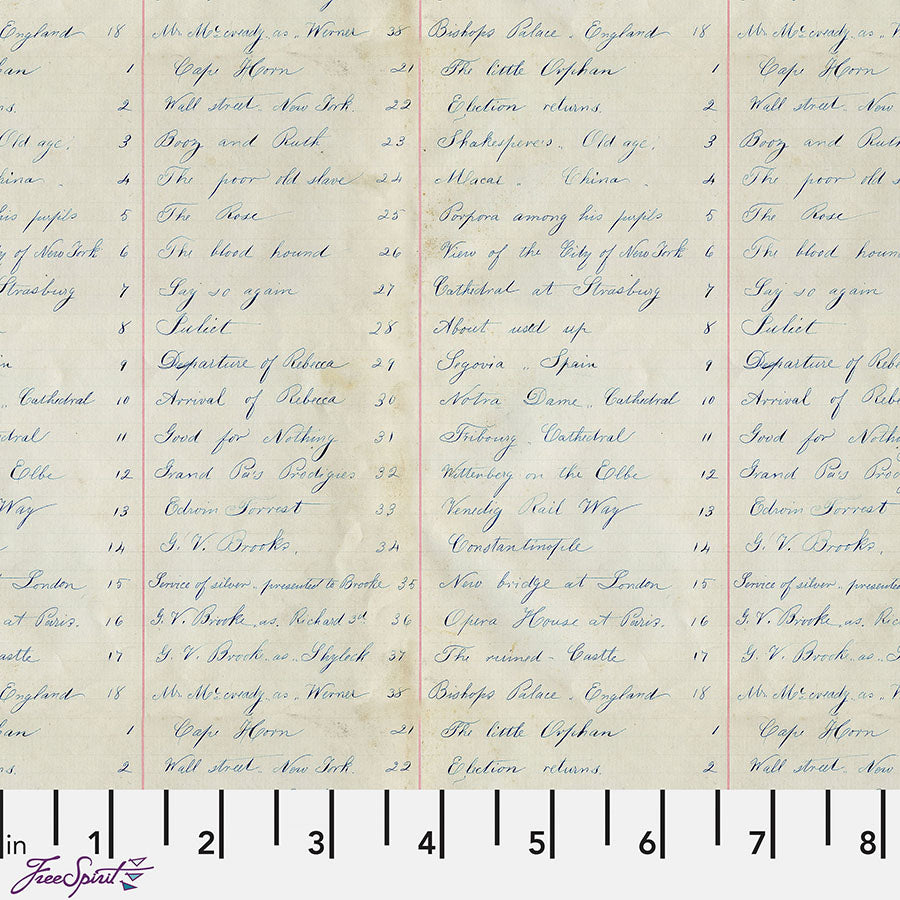 England 18 Mr McCready as Werner 38 Bishops Palace England 18 Mr McCready as W
an 1 Cape Horn 21 The little Orphan 1 Cape Horn
ns. 2 Wall street New York 22 Election returns. 2 Wall street New
Old age. 3 Booz and Ruth 23 Shakespere's Old age. 3 Booz and Ruth
hina 4 The poor old slave 24 Macai China 4 The poor old s
his pupils 5 The Rose 25 Porpora among his pupils 5 The Rose
y of New York 6 The blood hound 26 View of the City of New York 6 The blood houn
Strasburg 7 Say so again 27 Cathedral at Strasburg 7 Say so again
8 Juliet 28 About used up 8 Juliet
in 9 Departure of Rebecca 29 Segovia Spain 9 Departure of Rebe
Cathedral 10 Arrival of Rebecca 30 Notra Dame Cathedral 10 Arrival of Rebe
dral 11 Good for Nothing 31 Fribourg Cathedral 11 Good for Noth
Elbe 12 Grand Pa's Prodigies 32 Wittenberg on the Elbe 12 Grand Pa's Prod
Way 13 Edwin Forrest 33 Venedig Rail Way 13 Edwin Forrest
14 G. V. Brooks. 34 Constantinople 14 G. V. Brooks.
t London 15 Service of silver presented to Brooke 35 New bridge at London 15 Service of silver presented
at Paris. 16 G. V. Brooke as Richard 3d 36 Opera House at Paris. 16 G. V. Brooke as Ric
astle 17 G. V. Brooke as Shylock 37 The ruined Castle 17 G. V. Brooke as S
England 18 Mr McCready as Werner 38 Bishops Palace England 18 Mr McCready as W
an 1 Cape Horn 21 The little Orphan 1 Cape Horn
ns. 2 Wall street New York. 22 Election returns. 2 Wall street New
in 1 2 3 4 5 6 7 8
FreeSpirit